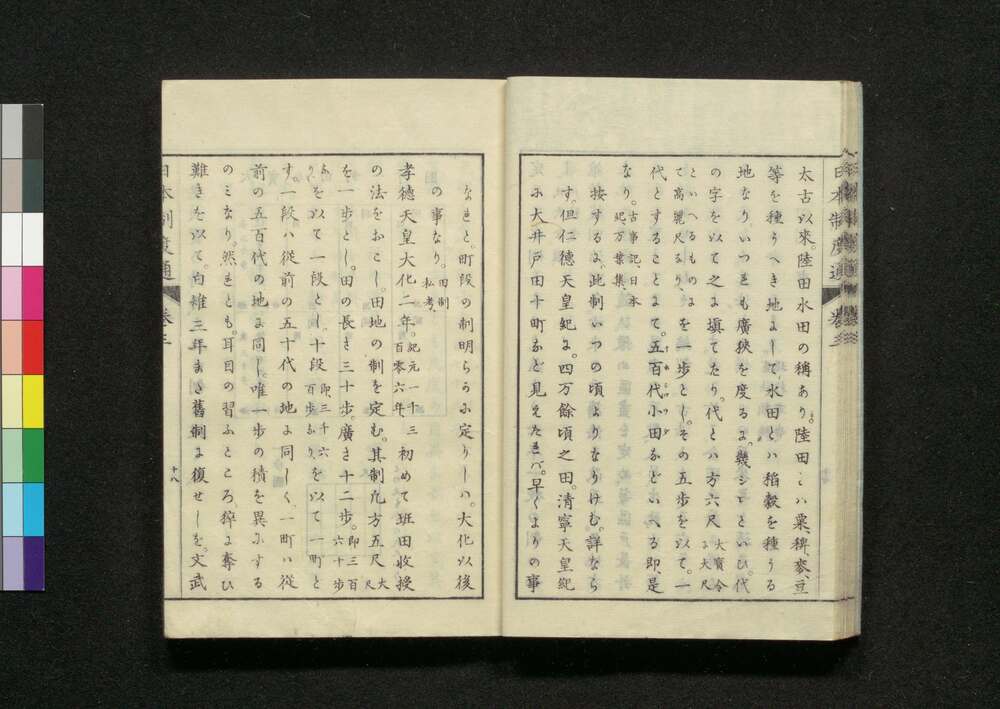 日本制度通 卷三
太古以來。陸田水田の稱あり。陸田とハ粟、稗、麥、豆
等を種うへき地にして、水田とハ稻穀を種うる
地なり、いつれも廣狹を度るに。幾シロといひ。代
の字を以て之に塡てたり。代とハ方六尺 大寶令に大尺
といへるものは高麗尺なり、を一歩とし。その五歩を以て。一
代とすることにて。五百代小田などいへる即是
なり。古事記、日本紀、万葉集、
按するに。此制いつの頃よりなりけむ。詳なら
す。但仁德天皇紀に。四万餘頃之田。淸寧天皇紀
に大井戸田十町など見えたれバ。早くよりの事
なれと。町段の制明らかに定りしハ。大化以後
の事なり。田制私考、
孝德天皇大化二年。紀元一千三百零六年、初めて班田收授
の法をおこし。田地の制を定む。其制凡方五尺 大尺
を一歩とし。田の長さ三十歩。廣さ十二歩。即三百六十歩
なり、を以て一段とし。十段 即三千六百歩なり を以て一町と
す。一段ハ從前の五十代の地に同しく、一町ハ從
前の五百代の地に同し。唯一歩の積を異にする
のミなり。然れとも。耳目の習ふところ、猝に奪ひ
難きを以て、白雉三年また舊制に復せしを。文武
日本制度通 卷三
十八